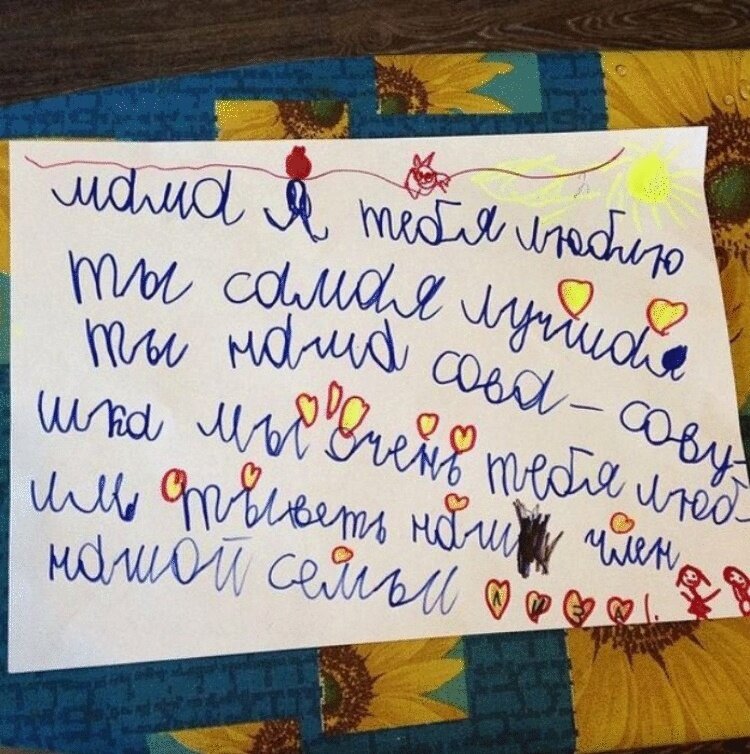 мама я тебя люблю
ты самая лучшая
ты наша сова - сову-
шка мы очень тебя люб-
им. ты веть наш член
нашой семьи ЛИЗА!